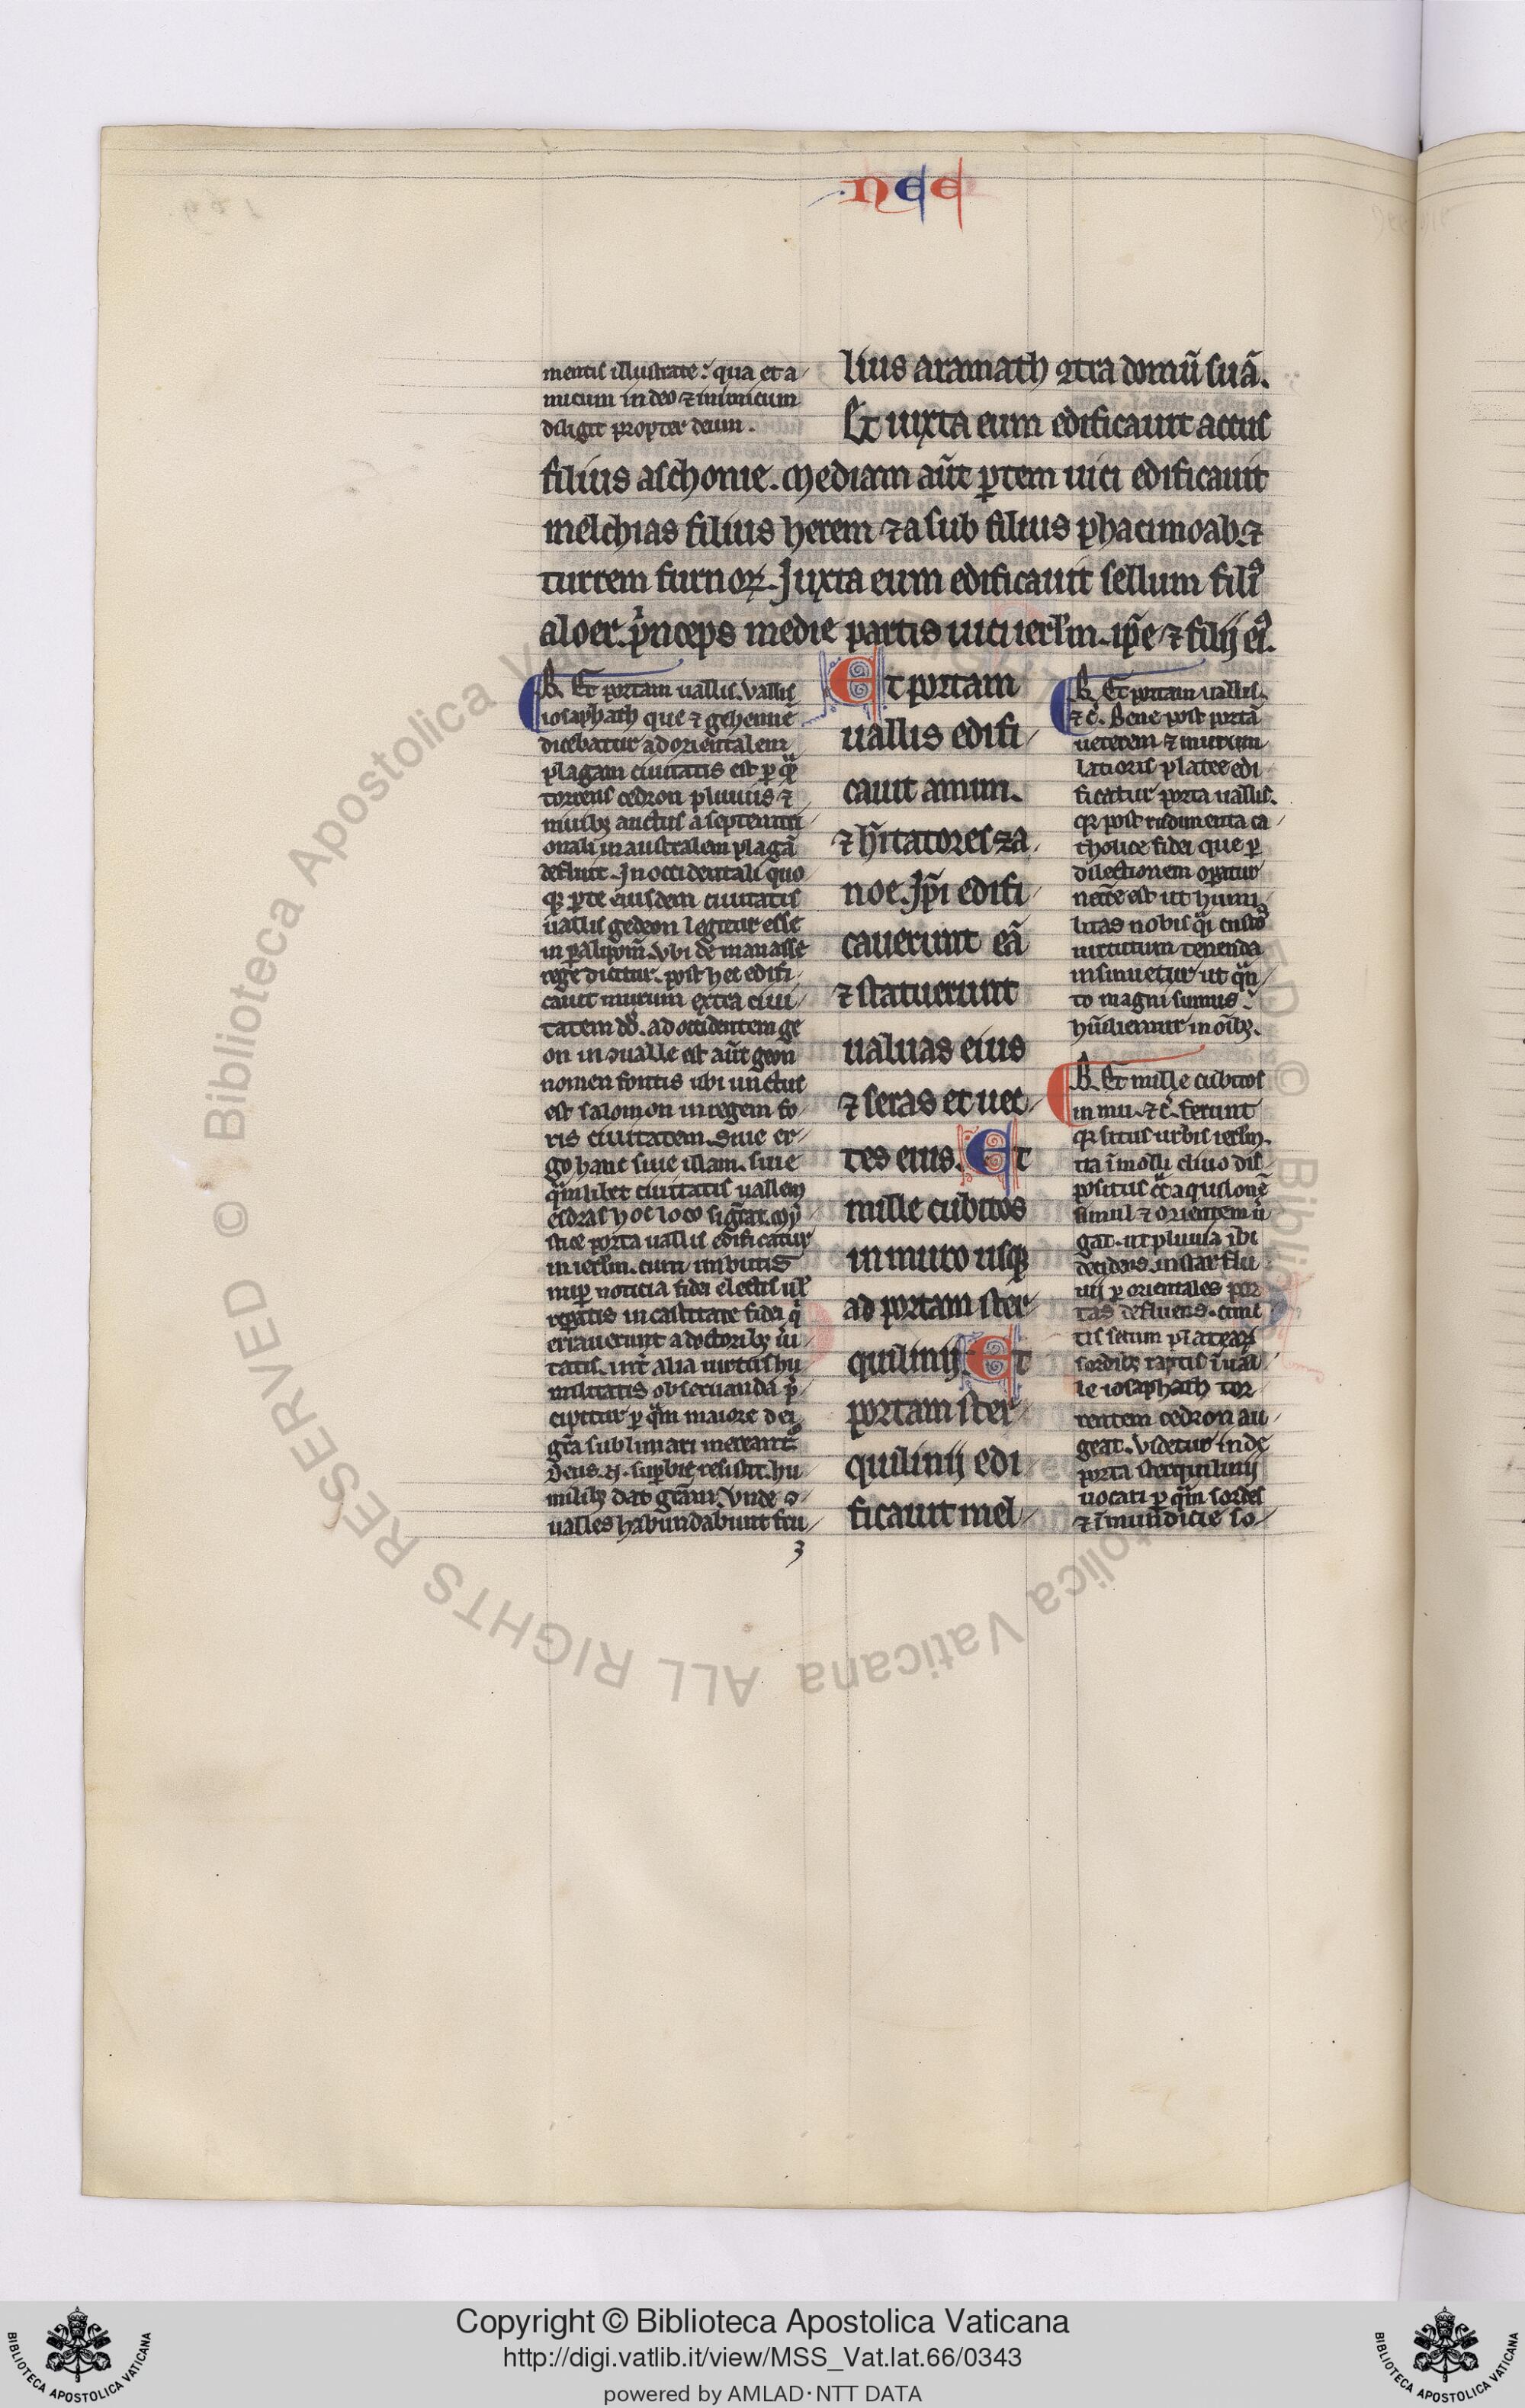 NEE
mentis illustrate. qua et a
micum in deo ⁊ inimicum
diligit propter deum.
lius aramath ɔtra domū suā.
Et iuxta eum edificauit actus
filius aschonie. Mediam aūt ꝑtem uici edificauit
melchias filius herem ⁊ asub filius phacimoab. ⁊
turrem furnoꝝ. Juxta eum edificauit sellum filiꝰ
aloer. pͥnceps medie partis uici ierl̄m. ip̄e ⁊ filij eiꝰ.
B. Et portam uallis. Vallis
iosaphath que ⁊ gehennē
dicebatur ad orientalem
plagam ciuitatis est ꝑ qᵃ̄
torrens cedron pluuiis ⁊
niuibꝫ auctus a septentri
onali in australem plagā
defluit. In occidentali quo
qꝫ ꝑte eiusdem ciuitatis
uallis gedeon legitur esse
in ꝑalipom̄. Vbi de manasse
rege dicitur. post hec edifi
cauit murum extra ciui
tatem dd̄. ad occidentem ge
on in ɔualle est aūt geon
nomen fontis ubi unctus
est salomon in regem fo
ris ciuitatem. Siue er
go hanc siue illam. siue
qᵃmlibet ciuitatis uallem
esdras hoc loco sigͣt. My
stice porta uallis edificatur
in ierl̄m. cum imbutis
nuꝑ noticia fidei electis ul̄
reꝑatis in castitate fidei qͥ
errauerunt a doctoribꝫ ūi
tatis. int̄ alia uirtus hu
militatis obseruanda p̄
cipitur ꝑ qᵃm maiore dei
gr̄a sublimari mereantᷣ.
Deus .n. suꝑbis resistit. hu
milibꝫ dat gr̄am. Vnde ⁊
ualles habundabunt fru
3
Et portam
uallis edifi
cauit anun.
⁊ hītatores za
noe. Ip̄i edifi
cauerunt eā
⁊ statuerunt
ualuas eius
⁊ seras et uec
tes eius. Et
mille cubitos
in muro usqꝫ
ad portam ster
quilinij. Et
portam ster
quilinij edi
ficauit mel
B. Et portam uallis.
⁊ c̄. Bene post portā
ueterem ⁊ murum
latioris platee edi
ficatur porta uallis.
qꝫ post rudimenta ca
tholice fidei que ꝑ
dilectionem oꝑatur
necc̄e est ut humi
litas nobis qͣi custoˢ
uirtutum tenenda
insinuetur ut qᵃn
to magni sumus.
hūiliemur in oībꝫ.
B. Et mille cubitos
in mu. ⁊ c̄. Ferunt
qꝫ situs urbis ierl̄m.
ita ī molli cliuo dis
positus cͨa aquilonē
simul ⁊ orientem ū
gat. ut pluuia ibi
decidens. instar flu
uij ꝑ orientales por
tas defluens. cunc
tis secum platearꝫ
sordibꝫ raptis ī ual
le iosaphath tor
rentem cedron au
geat. Videtur inde
porta sterquilinij
uocari ꝑ qᵃm sordes
⁊ īmundicie so
Copyright © Biblioteca Apostolica Vaticana
http://digi.vatlib.it/view/MSS_Vat.lat.66/0343
powered by AMLAD·NTT DATA
BIBLIOTECA APOSTOLICA VATICANA
BIBLIOTECA APOSTOLICA VATICANA